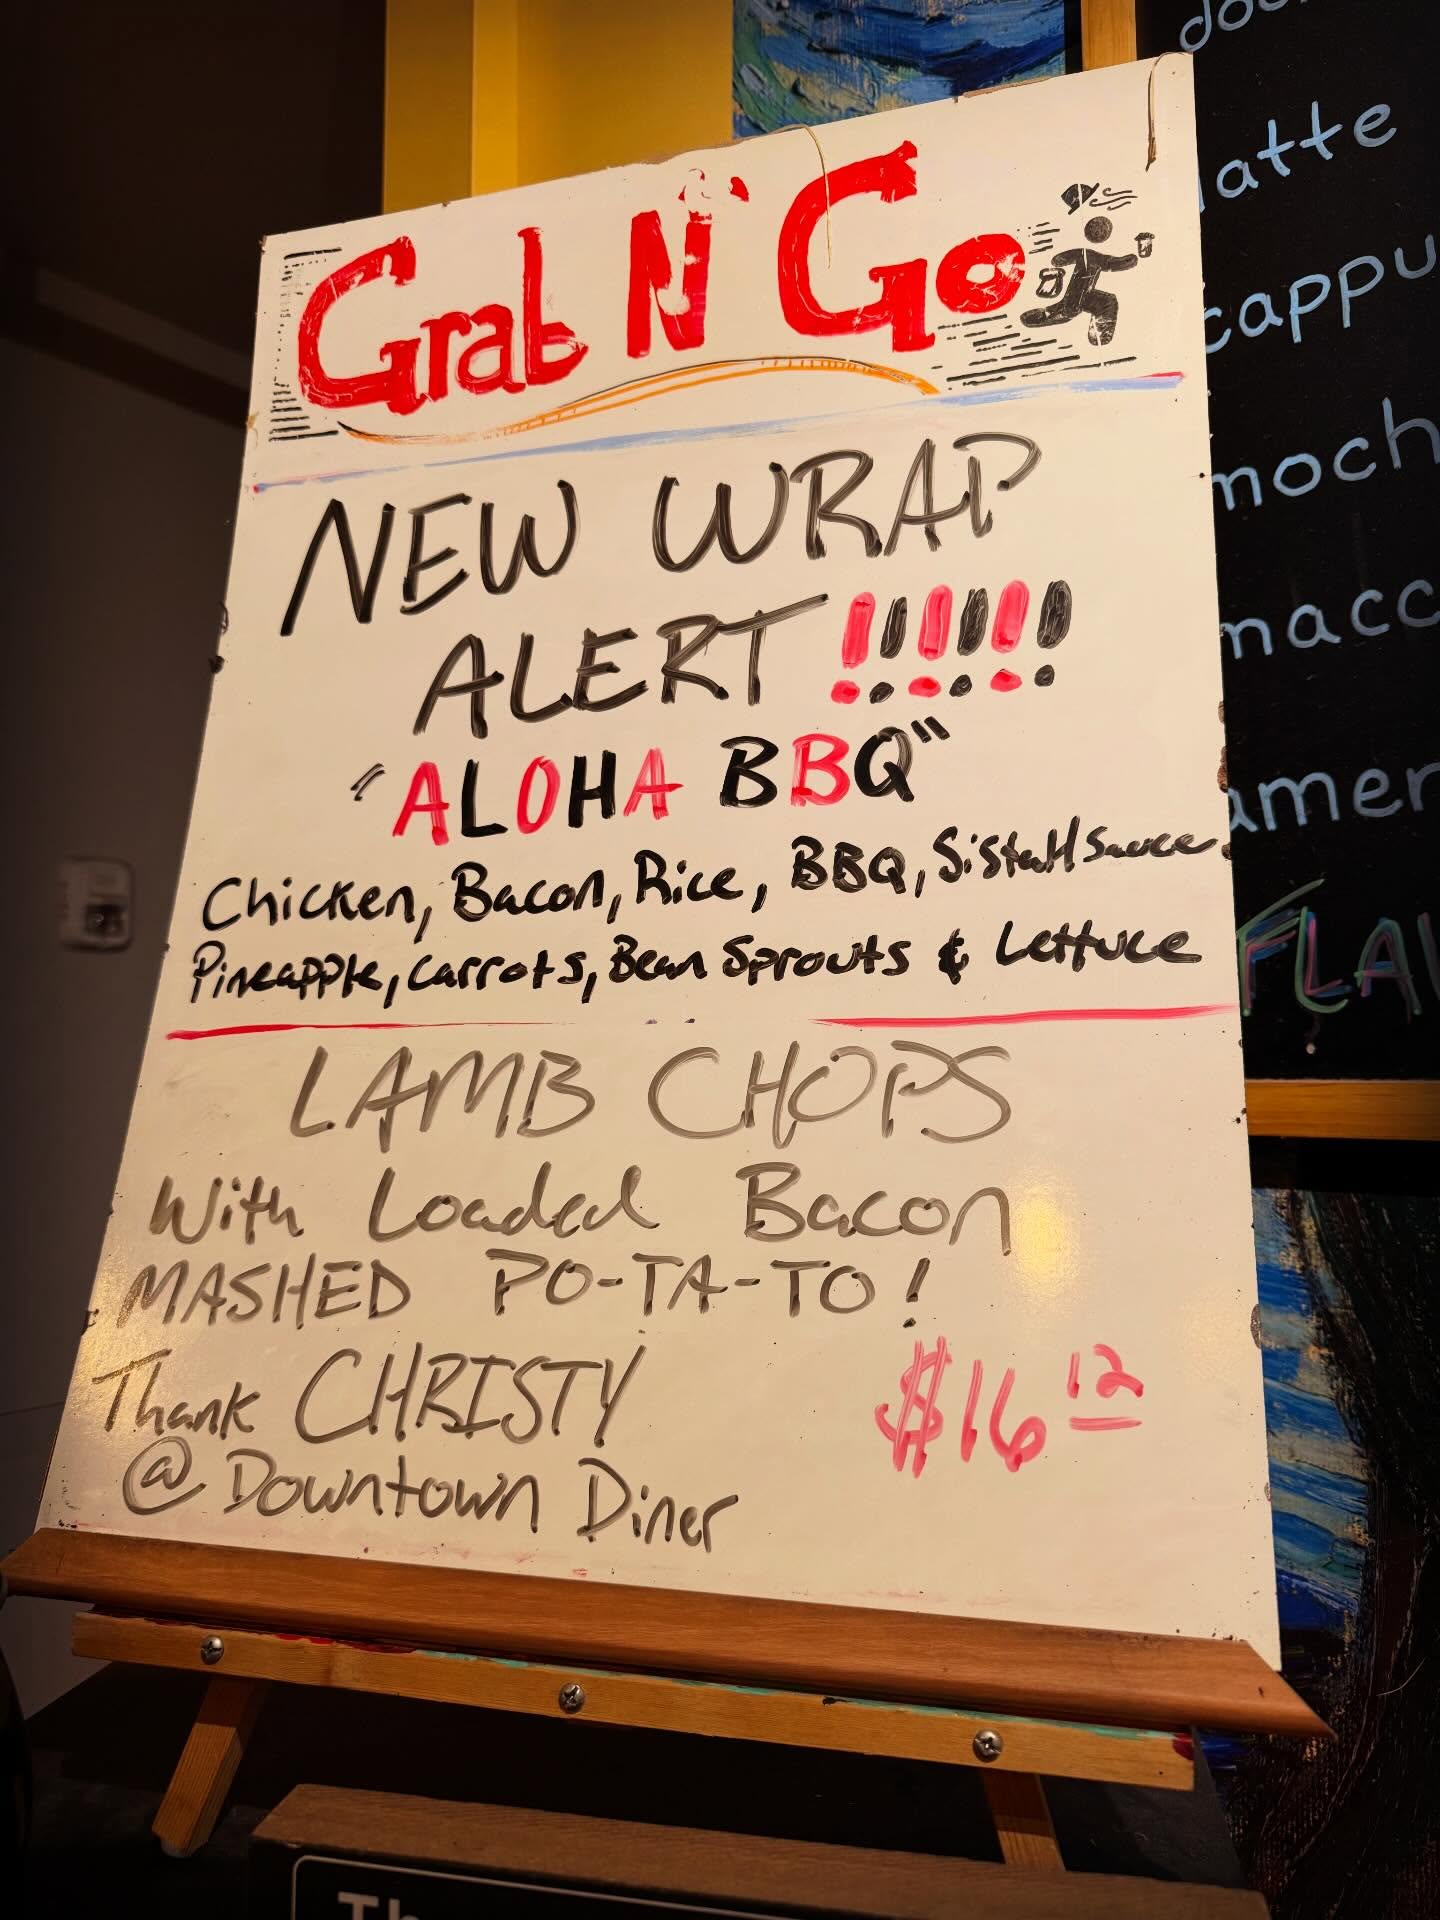 Grab N' Go
NEW WRAP
ALERT !!!!!!
"ALOHA BBQ"
Chicken, Bacon, Rice, BBQ, SiStaH Sauce
Pineapple, carrots, Bean Sprouts & Lettuce
LAMB CHOPS
With Loaded Bacon
MASHED PO-TA-TO!
Thank CHRISTY
@ Downtown Diner
$16 12
latte
cappu
moch
macc
amer
FLAV
Th